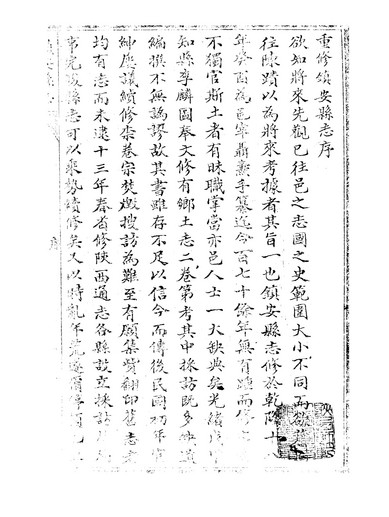 重修鎮安縣志序
欲知將來先觀已往邑之志國之史範圍大小不同而欲
往陳蹟以為將來考據者其旨一也鎮安縣志修於乾隆十八
年癸酉為邑宰聶燾手纂迄今百七十餘年無有踵而修
不獨官斯土者有昧職掌當亦邑人士一大缺典矣光緒
知縣李麟圖奉文修有鄉土志二卷第考其中採訪既多
編撰不無謬故其書雖存不足以信今而傳後民國初年
紳庶議續修宗卷焚燬搜訪為難至有願集貲翻印舊志
均有志而未逮十三年春省修陝西通志各縣設立採訪
志可以乘勢續修矣又以時
序